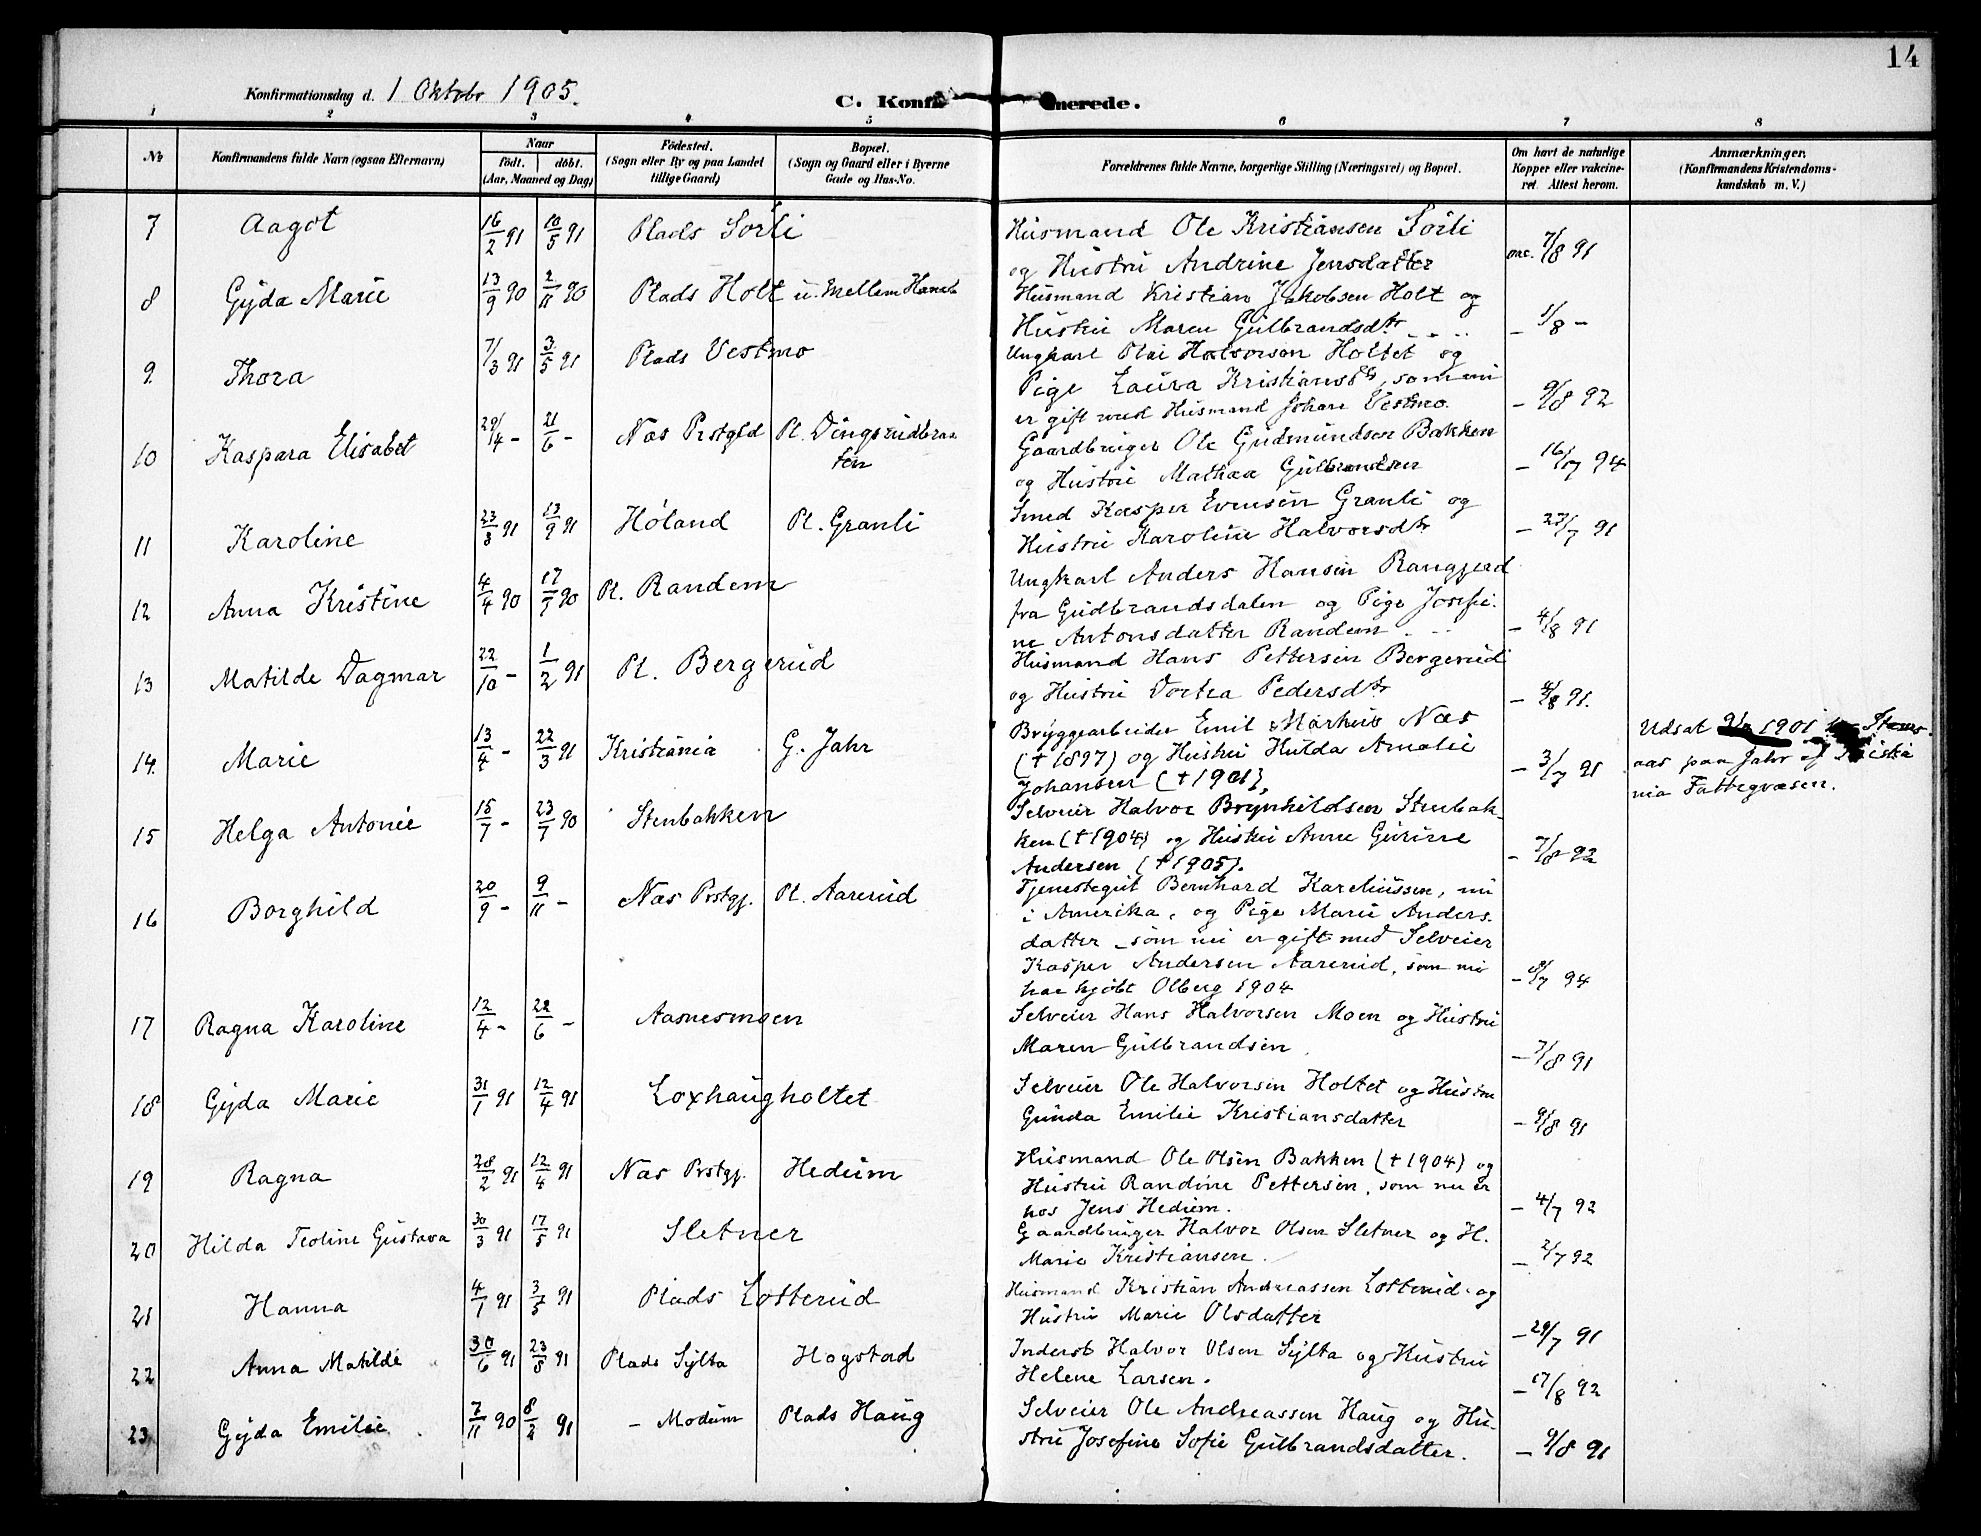 14
Konfirmationsdag d. 1 Oktobr 1905.
C. Konfi merede.
1 2 3 4 5 6 7 8
No Konfirmandens fulde Navn (ogsaa Efternavn) Naar født. døbt. (Aar, Maaned og Dag) Fødested. (Sogn eller By og paa Landet tillige Gaard) Bopæl. (Sogn og Gaard eller i Byerne Gade og Hus-No. Forældrenes fulde Navne, borgerlige Stilling (Næringsvei) og Bopæl. Om havt de naturlige Kopper eller vakcineret. Attest herom. Anmærkninger. (Konfirmandens Kristendomskundskab m. V.)
7 Aagot 16/2 91 10/5 91 Plads Sörli Husmand Ole Kristiansen Sörli
og Hustru Andrine Jensdatter vac. 7/8 91
8 Gyda Marie 13/9 90 2/11 90 Plads Holt u. Mellem Husmand Kristian Jakobsen Holt og
Hustru Maren Gulbrandsdtr - 1/8 -
9. Thora 7/3 91 3/5 91 Plads Vestmo Ungkarl Olai Halvorsen Holtet og
Pige Laura Kristiansdtr, som nu
er gift med Husmand Johan Vestmo. - 9/8 92
10 Kaspara Elisabet 29/4 - 21/6 - Næs Prstgld Pl. Dingsrudbraa
ten Gaardbruger Ole Gudmundsen Bakken
og Hustru Mathea Gulbrandsen - 16/7 94
11 Karoline 23/3 91 13/9 91 Høland Pl. Granli Smed Kasper Evensen Granli og
Hustru Karoline Halvorsdtr - 27/7 91
12 Anna Kristine 4/4 90 17/7 90 Pl. Randem Ungkarl Anders Hansen Rangjerd
fra Gudbrandsdalen og Pige Josefi-
ne Antonsdatter Randem - 4/8 91
13 Matilde Dagmar 22/10 - 1/2 91 Pl. Bergerud Husmand Hans Pettersen Bergerud
og Hustru Dortea Pedersdtr - 4/8 91.
14. Marie 13/4 - 22/3 91 Kristiania G. Jahr Bryggearbeider Emil Markus Næs
(+1897) og Hustru Hulda Amalie
Johansen (+1901), - 3/7 91 Udsat 1901
aas paa Jahr af Kristia
nia Fattigvæsen.
15 Helga Antonie 15/7 - 23/7 90 Stenbakken Selveier Halvor Brynhildsen Stenbak-
ken (+1904) og Hustru Anne Gurine
Andersen (+1905). - 7/8 92
16 Borghild 20/9 - 9/11 - Næs Prstgj. Pl. Aarerud Tjenestegut Bernhard Kareliussen, nu
i Amerika, og Pige Marie Anders-
datter - som nu er gift med Selveier
Kasper Andersen Aarerud, som nu
har kjøbt Olberg 1904 - 8/7 94
17 Ragna Karoline 12/4 - 22/6 - Aasnesmoen Selveier Hans Halvorsen Moen og Hustru
Maren Gulbrandsen - 7/8 91
18 Gyda Marie 31/1 91 12/4 91 Loxhaugholtet Selveier Ole Halvorsen Holtet og Hustru
Gunda Emilie Kristiansdatter - 9/8 91
19 Ragna 28/2 91 12/4 91 Næs Prstgj. Hedeum Husmand Ole Olsen Bakken (+1904) og
Hustru Randine Pettersen, som nu er
hos Jens Hedeum. - 4/7 92
20 Hilda Teoline Gustava 30/3 91 17/5 91 Sletner Gaardbruger Halvor Olsen Sletner og H.
Marie Kristiansen. - 2/7 92
21 Hanna 4/1 91 3/5 91 Plads Lotterud Husmand Kristian Andreassen Lotterud og
Hustru Marie Olsdatter - 29/7 91
22 Anna Matilde 30/6 91 23/8 91 Plads Sylta Hogstad Inderst Halvor Olsen Sylta og Hustru
Helene Larsen. - 17/8 92
23 Gyda Emilie 7/11 90 8/2 91 - Modum Plads Haug Selveier Ole Andreassen Haug og Hu-
stru Josefine Sofie Gulbrandsdatter. - 9/8 91